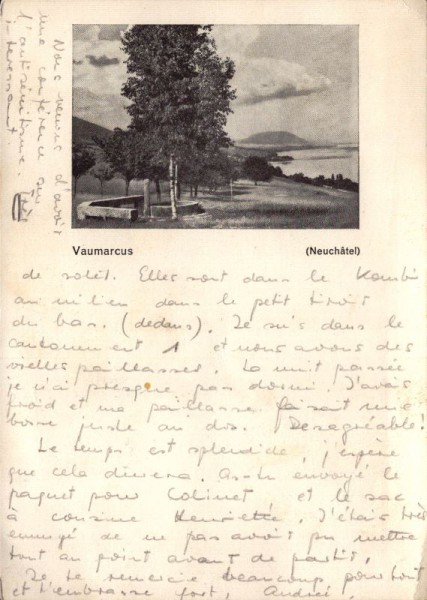 Vaumarcus (Neuchâtel)
de soleil. Elles sont dans le Kombi
au milieu dans le petit tiroir
du bas. (dedans). Je suis dans le
cantonnement 1 et nous avons des
vieilles paillasses. La nuit passée
je n'ai presque pas dormi. J'avais
froid et ma paillasse faisait une
bosse juste au dos. Desagréable!
Le temps est splendide, j'espère
que cela durera. As-tu envoyé le
paquet pour Colinet et le sac
à cousine Henriette. J'étais très
ennuyé de ne pas avoir pu mettre
tout au point avant de partir.
Je te remercie beaucoup pour tout
et t'embrasse fort, André.
Nous venons d'avoir
une conférence sur
l'antisémitisme. Très
interessant.